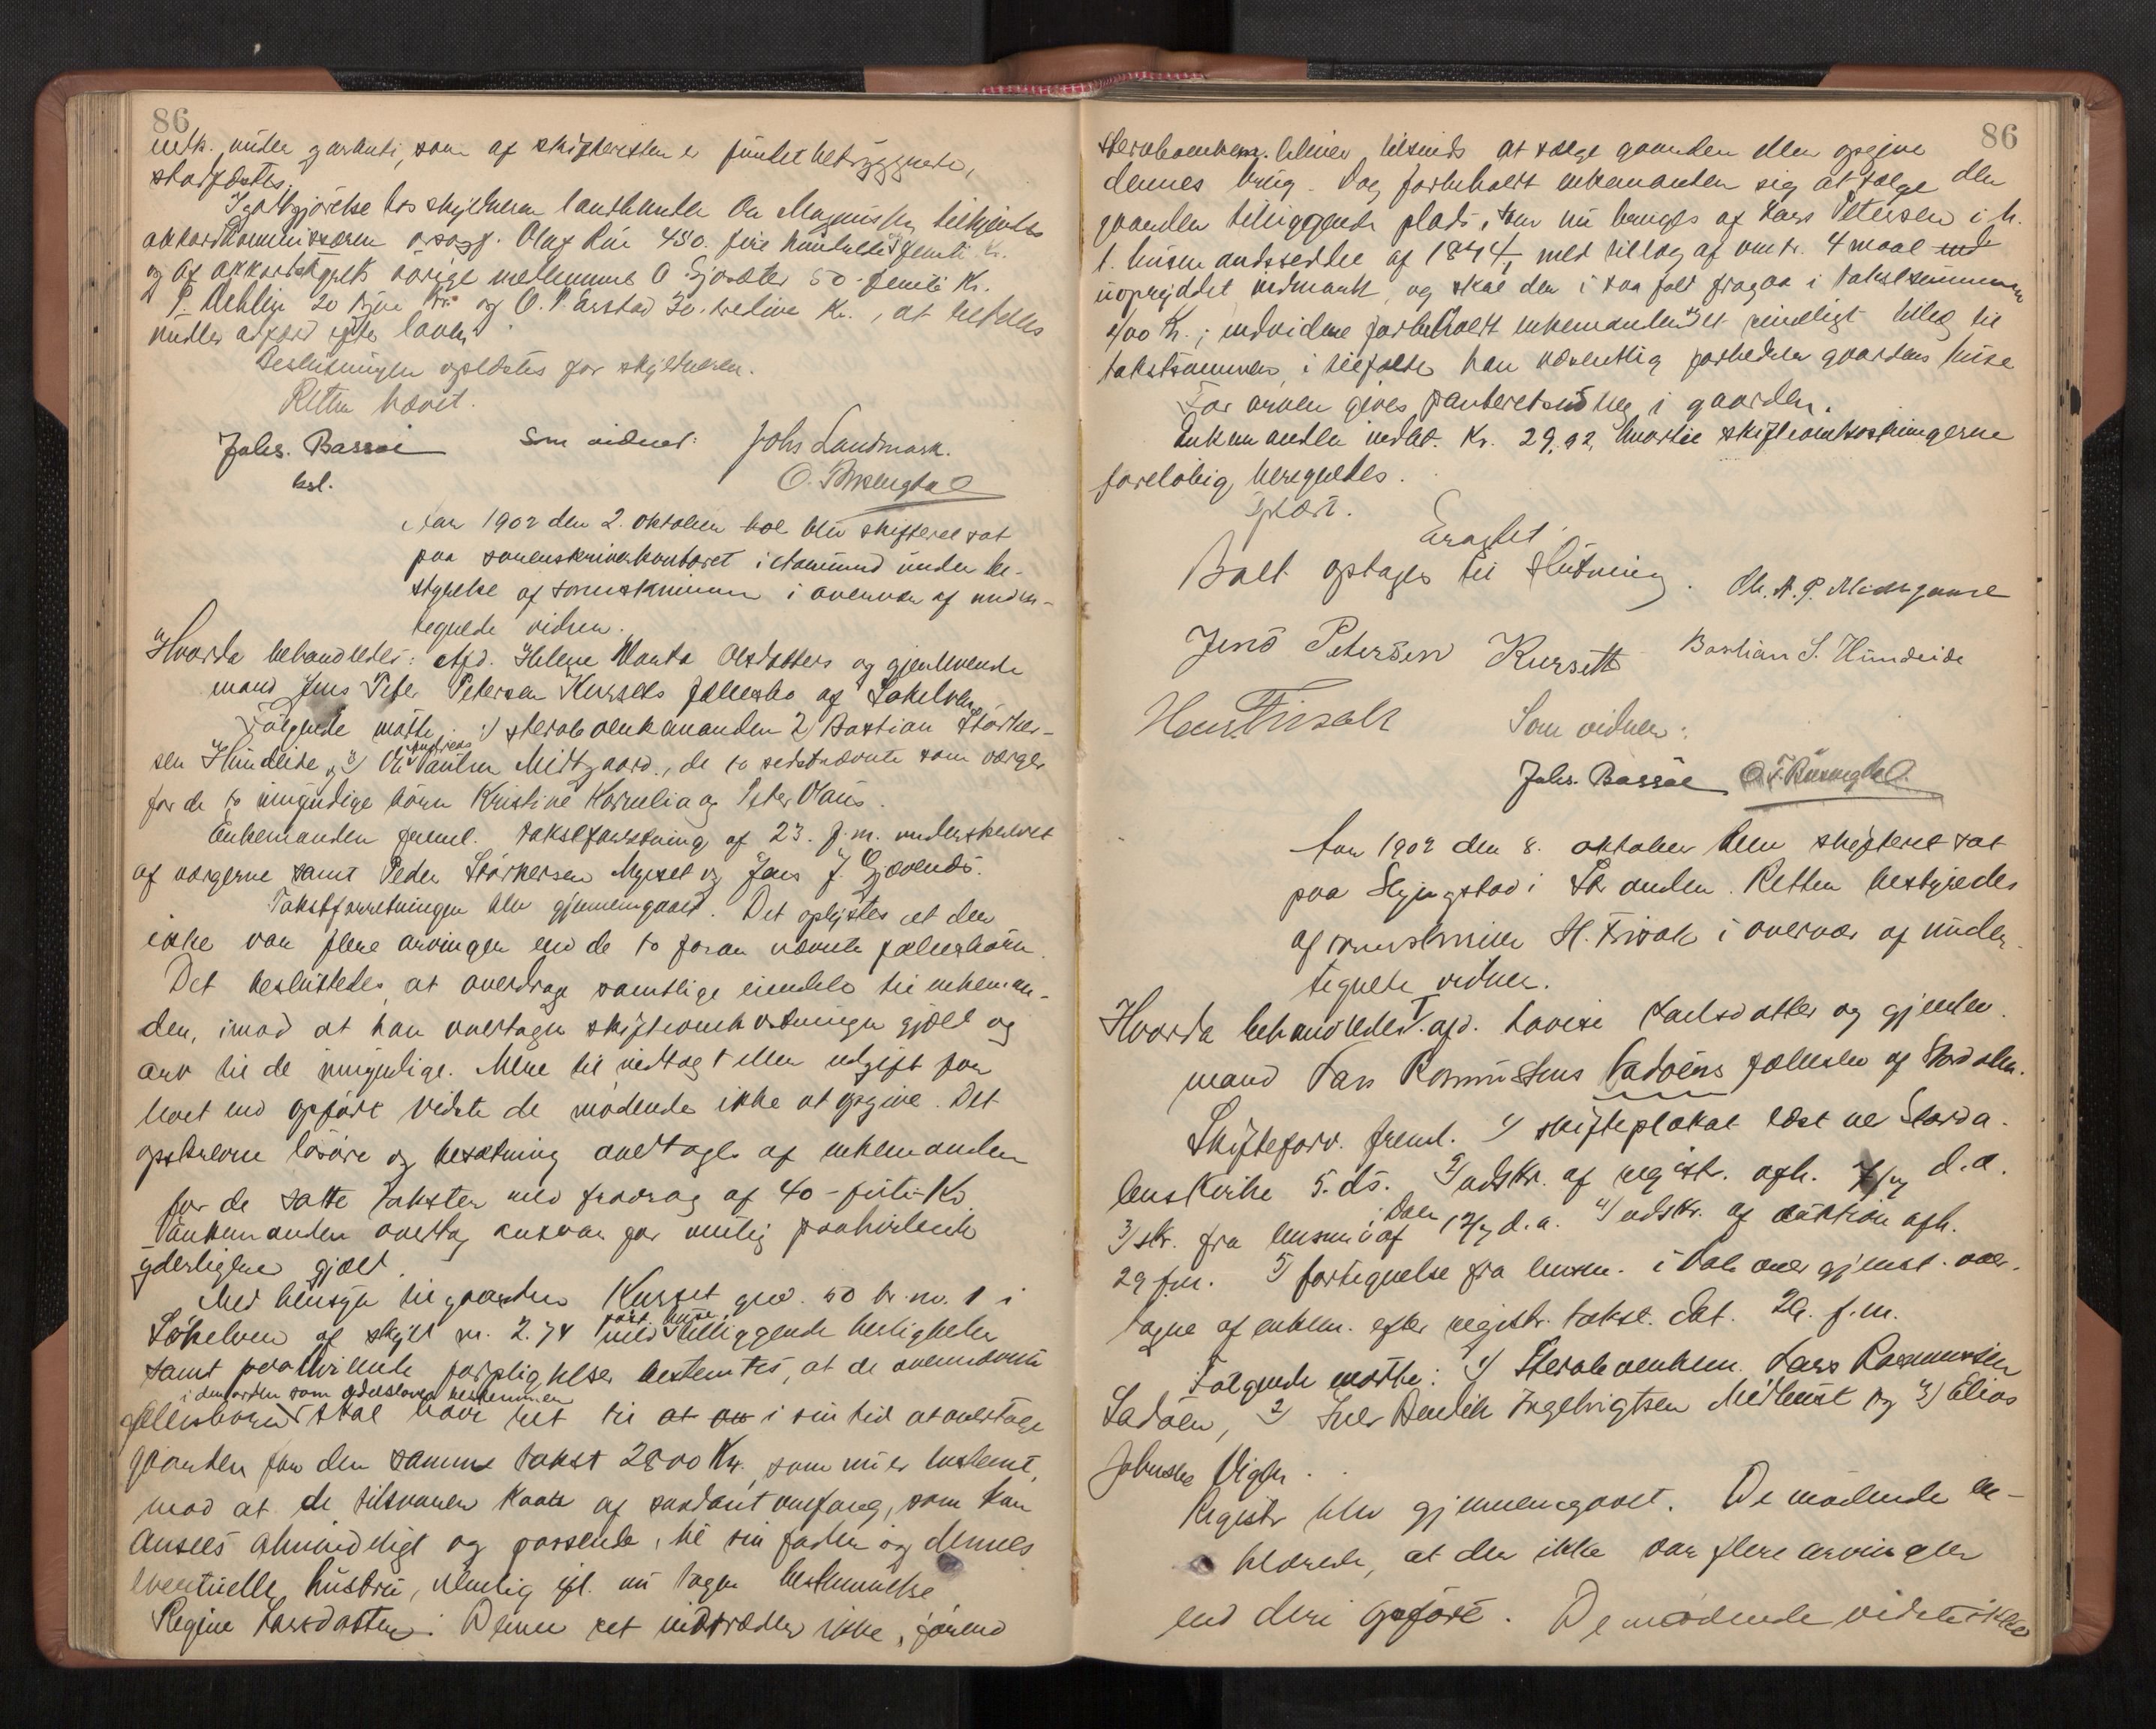 86
under garanti, som af skifteretten er fundet betryggende,
stadfæstes.
I godtgjørelse hos skyldneren landhandler Ole Magnussen tilkjendtes
akkordkommissæren o.sagf. Olaf 450. fire hundrede og femti Kr.
og af akkordstyrets övrige medlemmer O. Gjosæter 50 - femti Kr.
P. 20 tyve Kr. og O. P. Aarstad 30. tredive Kr., at betales
under adfærd efter loven.
Beslutningen oplæstes for skyldneren.
Retten hævet.
Johs. Bassøe Som vidner: Johs Landmark.
kst. O. F. Rosenghal
Aar 1902 den 2. oktober blev skifteret sat
paa sorenskriverkontoret i Aalesund under be-
styrelse af sorenskriveren i overvær af under-
tegnede vidner.
Hvorda behandledes: Afd. Helene Marta Olsdatters og gjenlevende
mand Jens Peter Petersen Kursets fællesbo af Søkelven
Følgende mødte: 1) sterbo enkemanden 2) Bastian Størker-
sen Hundeide og 3) Ole Andreas Paulsen Midtgaard, de to sidstnævnte som værger
for de to umyndige børn Kristine Kornelia og Peter Olaus.
Enkemanden freml. takstforretning af 23. f.m. underskrevet
af værgerne samt Peder Störkersen Myrset og Jens J. Gjævenes.
Takstforretningen blev gjennemgaaet. Det oplystes at der
ikke var flere arvinger end de to foran nævnte fællesbørn.
Det besluttedes at overdrage samtlige eiendele til enkeman-
den, imod at han overtager skifteomkostninger gjæld og
arv til de umyndige. Mere til indtægt eller udgift for
boet end opført vidste de mødende ikke at opgive. Det
opskrevne løsøre og besætning overtages af enkemanden
for de satte takster med fradrag af 40 - firti - Kr.
Enkemanden overtog ansvar for mulig paahvilende
yderligere gjæld.
Med hensyn til gaarden Kurset gno. 50 br. no. 1 i
Søkelven af skyld m. 2.74 med samt huse tilliggende herligheder
samt paahvilende forpligtelser bestemtes, at de ovennævnte
i den orden som odelsloven bestemmer
fællesbørn skal have ret til at i sin tid at overtage
gaarden for den samme takst 2800 Kr. som nu er bestemt,
mod at de tilsvarer kaar af saadant omfang, som kan
ansees almindeligt og passende, til sin fader og dennes
eventuelle hustru, nemlig efl. nu tagen bestemmelse
Regine Larsdatter. Denne ret indtræder ikke, førend
86
sterboenkem. bliver tilsinds at sælge gaarden eller opgive
dennes brug. Dog forbeholdt enkemanden sig at sælge den
gaarden tilliggende plads, som nu bruges af Lars Petersen i h.
t. husmandsseddel af 1844, med tillæg af omtr. 4 maal
uopryddet udmark, og skal der i saa fald fragaa i takstsummen
400 Kr.; endvidere forbeholdt enkemanden sig et rimeligt tillæg til
takstsummen, i tilfælde han væsentlig forbedrer gaardens huse
For arven gives panteret i gaarden.
Enkemanden indbet. Kr. 29,92 hvortil skifteomkostningerne
foreløbig beregnedes.
Oplæst.
Eragtet:
Boet optages til slutning. Ole A. P. Midtgaard
Jens Petersen Kursett Bastian S. Hundeide
Hans Tirsalt Som vidner:
Johs. Bassøe O. F. Rosenghal
Aar 1902 den 8. oktober blev skifteret sat
paa Slyngstad i Stranden. Retten bestyredes
af sorenskriver H. i overvær af under-
tegnede vidner.
Hvorda behandledes: I. afd. Lovise Karlsdatter og gjenlev.
mand Lars Rasmussens Ladøens fællesbo af Stordalen.
Skifteforv. freml. 1) skifteplakat læst ved Storda-
lens kirke 5. ds. 2) udskr. af registr. afh. d.a.
3) skr. fra lensm. i Dale af d.a. 4) udskr. af auktion afh.
29 f.m. 5) fortegnelse fra lensm. i Dale over gjenst. over-
tagne af enkem. efter registr. takst. dat. 29. f.m.
Følgende mødte: 1) Sterboenkem. Lars Rasmussen
Ladøen, 2) Iver Bendik Ingebrigtsen Midthust og 3) Elias
Johnsen Vigen.
Registr. blev gjennemgaaet. De mødende er-
klærede, at der ikke var flere arvinger
end deri opført. De mødende vidste ikke